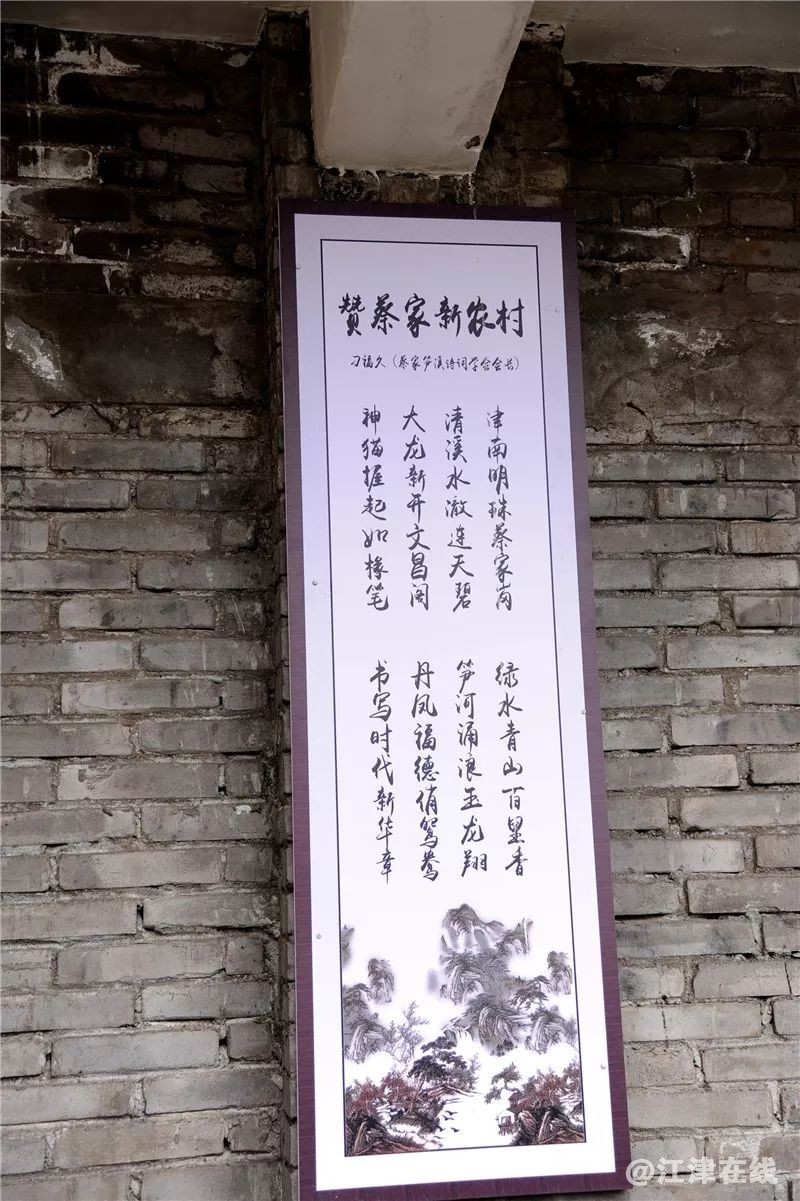 赞蔡家新农村
刁福久（蔡家笋溪诗词学会会长）
津南明珠蔡家岗
绿水青山百里香
清溪水澈连天碧
笋河涌浪玉龙翔
大龙新开文昌阁
丹凤福德俏鸳鸯
神猫握起如椽笔
书写时代新华章
@江津在线